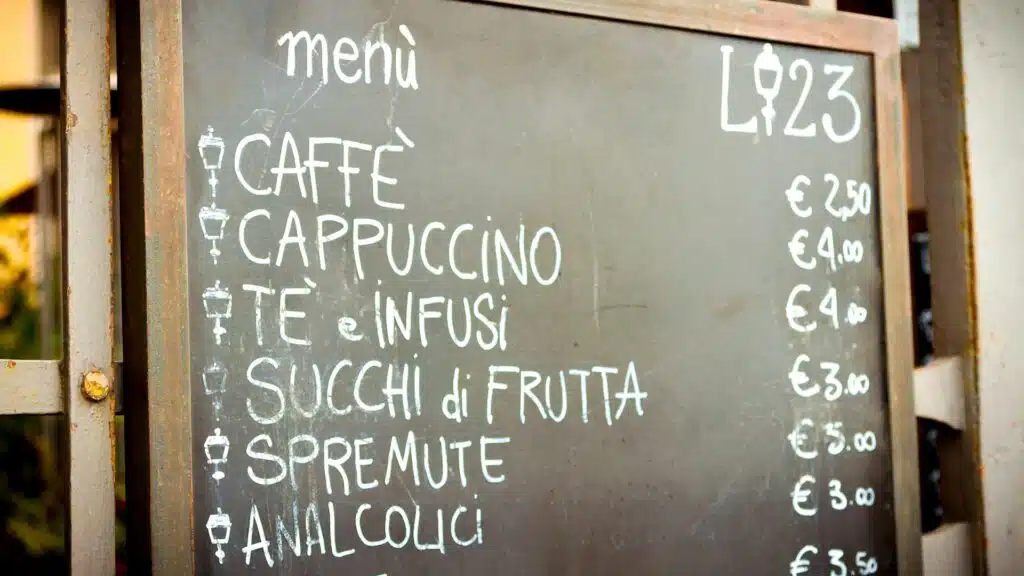 menù
L 23
CAFFÈ € 2,50
CAPPUCCINO € 4.00
TÈ e INFUSi € 4.00
SUCCHi di FRUTTA € 3.00
SPREMUTE € 5.00
ANALCOLiCi € 3.00
€ 3.50